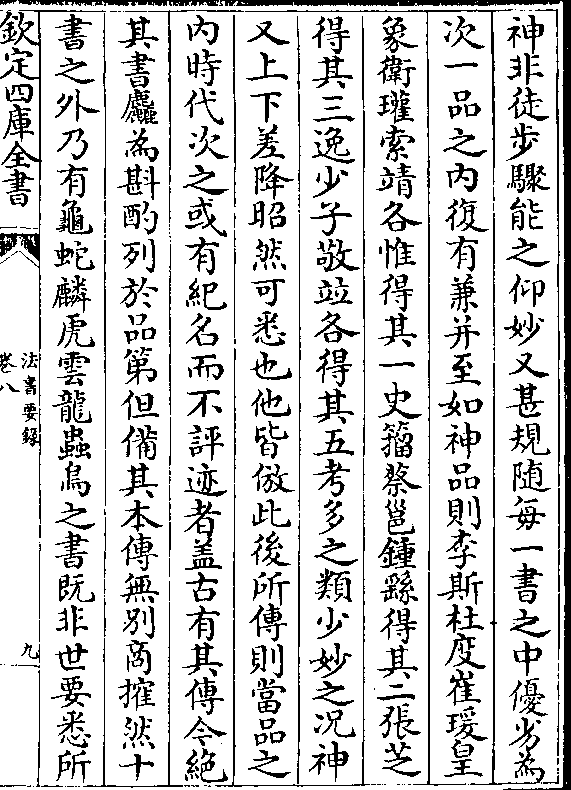 神非徒步驟能之仰妙又甚規随每一書之中優劣為
次一品之内復有兼并至如神品則李斯杜度崔瑗皇
象衛瓘索靖各惟得其一史籀蔡邕鍾繇得其二張芝
得其三逸少子敬竝各得其五考多之類少妙之况神
又上下差降昭然可悉也他皆倣此後所傳則當品之
内時代次之或有紀名而不評迹者盖古有其傳今絶
其書麤為斟酌列於品第但備其本傳無別商搉然十
書之外乃有龜蛇麟虎雲龍蟲鳥之書既非世要悉所
欽定四庫全書
法書要錄
卷八
九